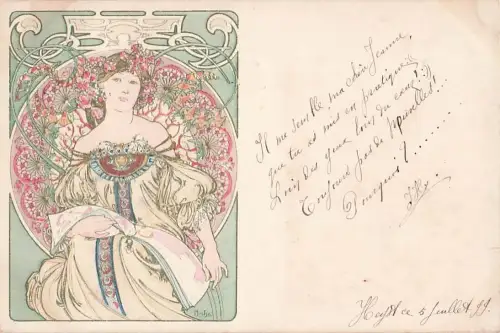 Il me semble ma chère Jeanne,
que tu as mis en pratique :
Loin des yeux loin du cœur !
Toujours pas de nouvelles !
Pourquoi ? .......
Heyst ce 5 Juillet 99.
Mucha